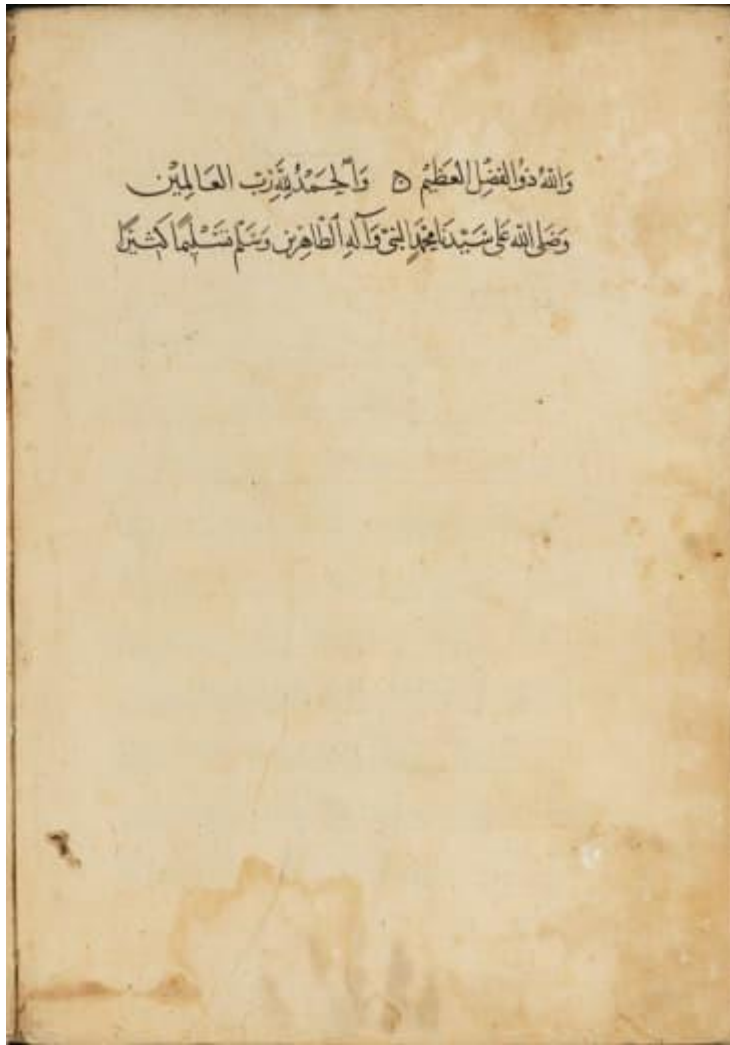 وَاللّٰهُ ذُو الفَضْلِ العَظِيْمِ ه وَالْحَمْدُ لِلّٰهِ رَبِّ العَالَمِيْن
وَصَلَى اللّٰه عَلى سَيْدنَا مُحَمَّدٍ النبى وَآلهِ الطَّاهِرِين وَسَلَّم تَسْلِيمًا كَثيْرًا